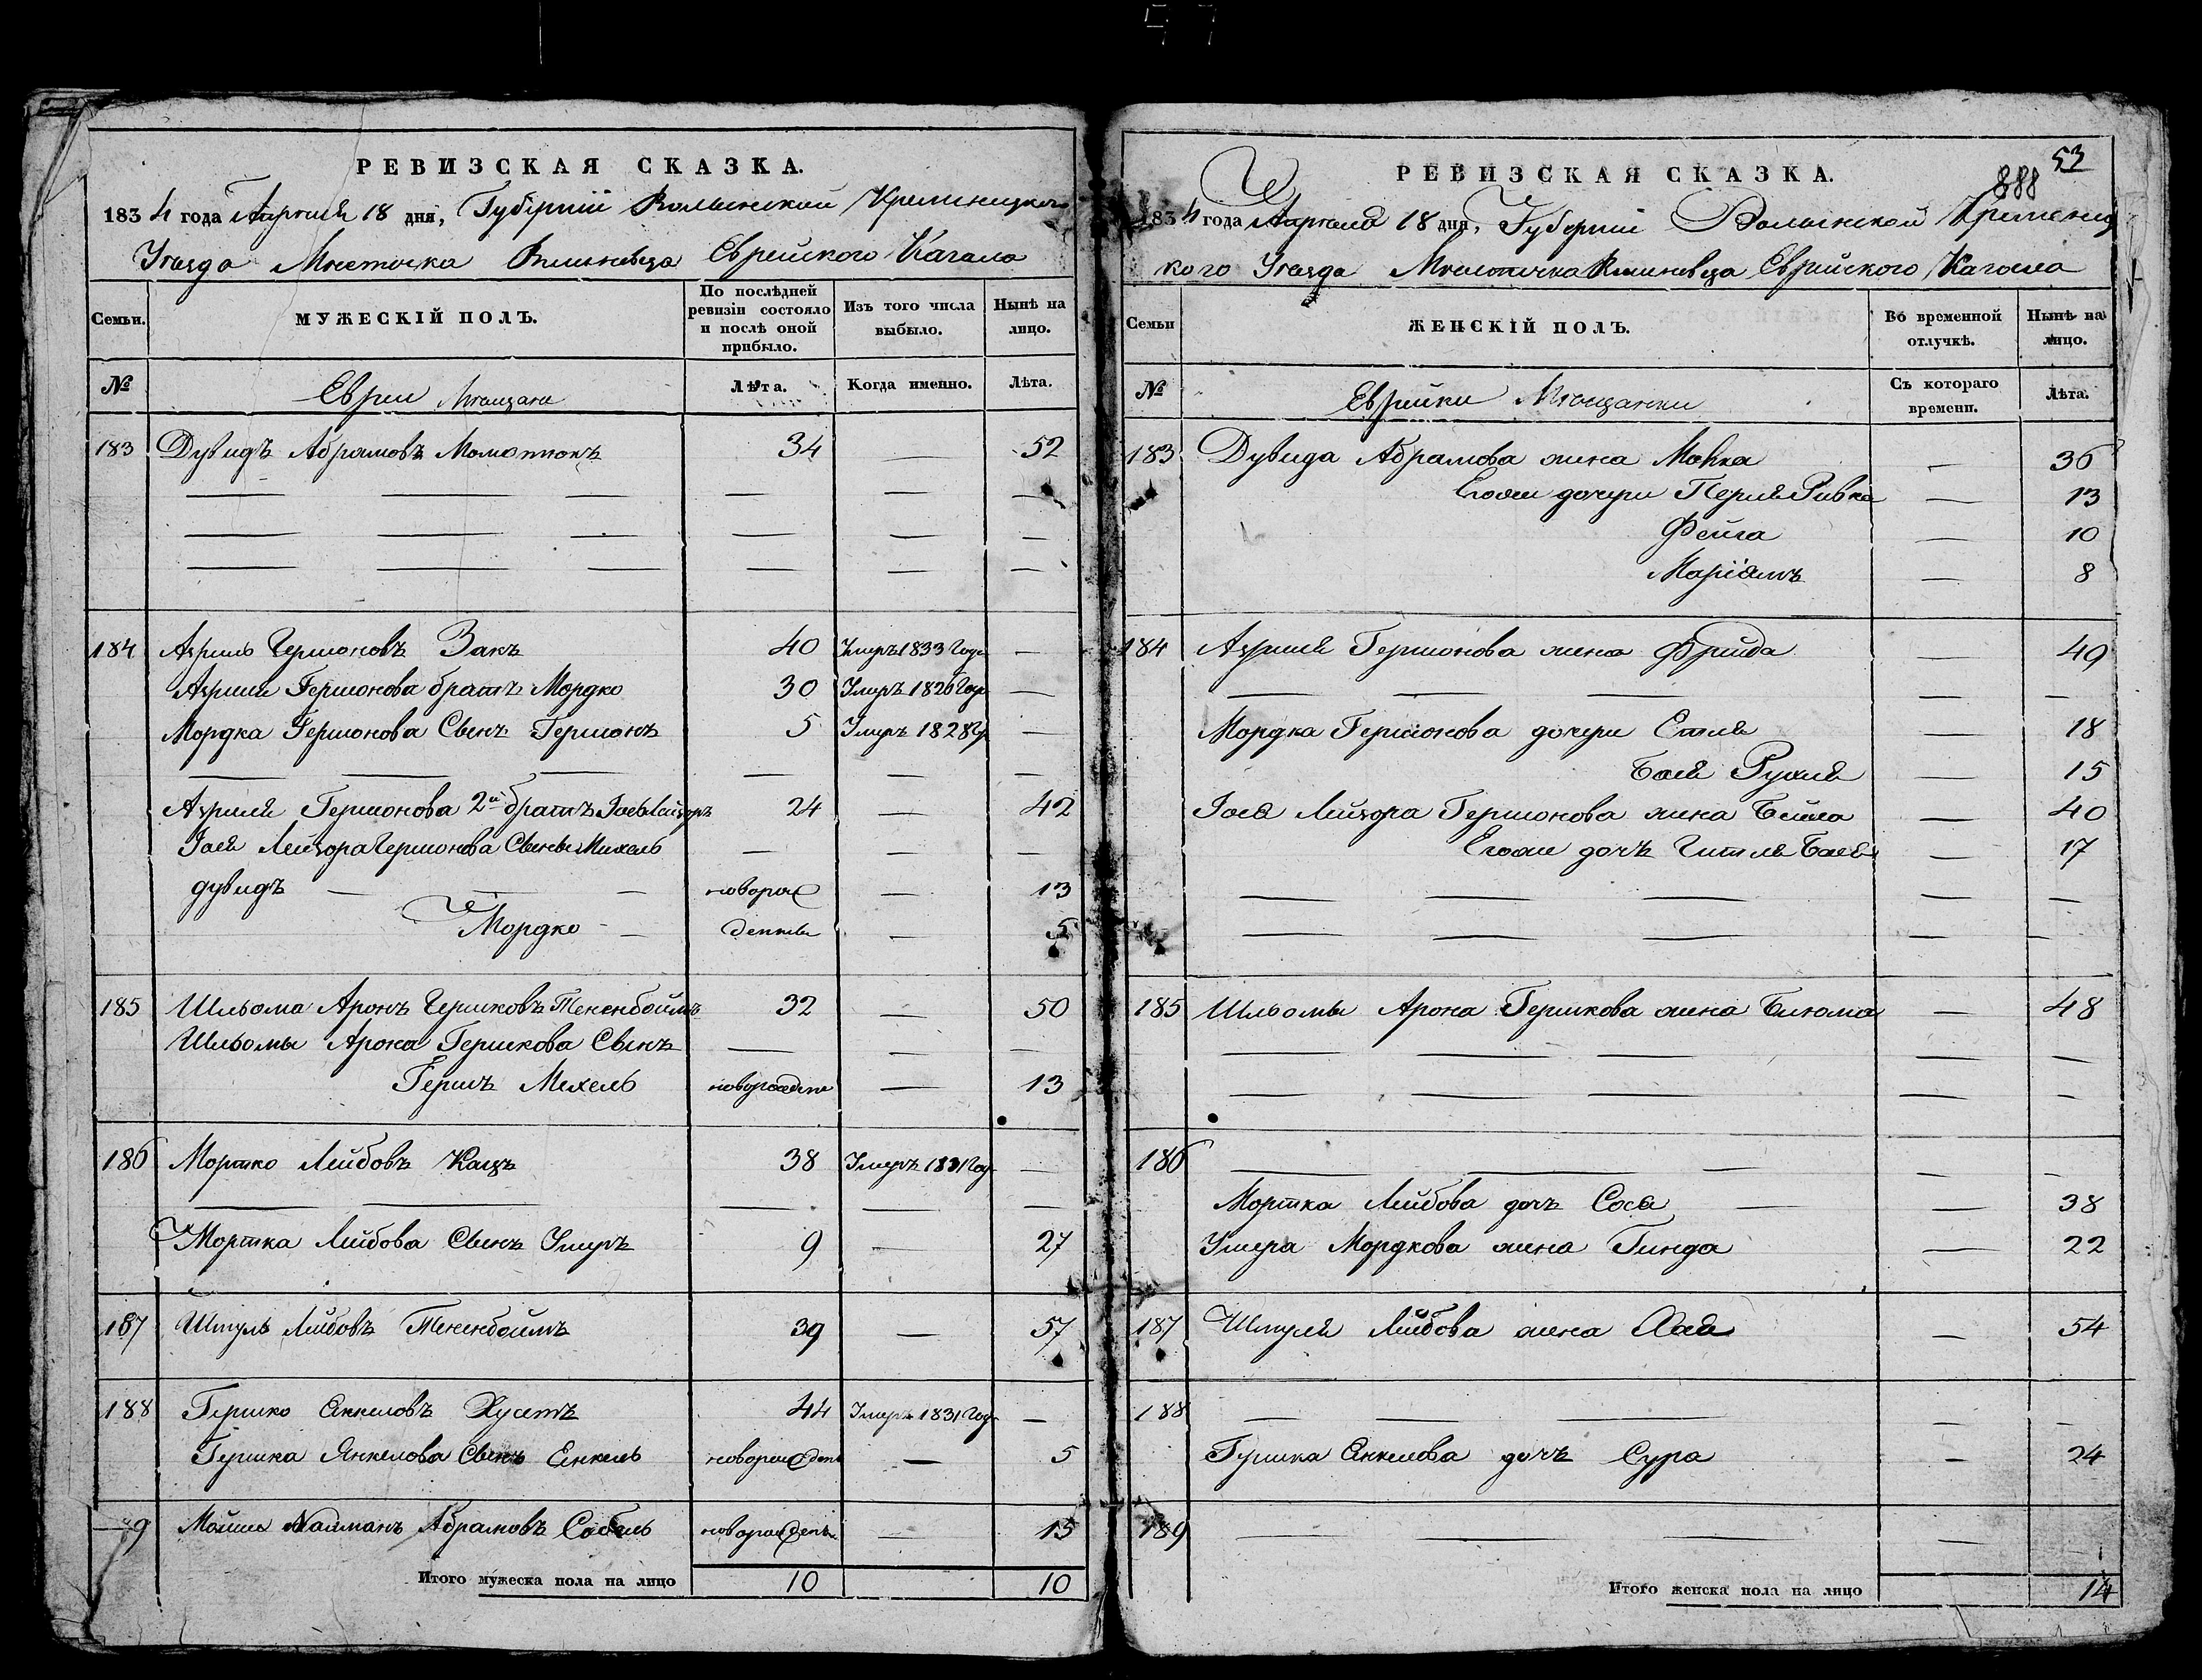 РЕВИЗСКАЯ СКАЗКА.
1834 года Апреля 18 дня, Губернии Волынской Кременецкого
Уезда Местечка Еврейского Кагала
Семьи.
МУЖЕСКІЙ ПОЛЪ.
По послѣдней ревизіи состояло и послѣ оной прибыло.
Изъ того числа выбыло.
Нынѣ на лицо.
№
Евреи Мещане
Лѣта.
Когда именно.
Лѣта.
183 Дувидъ Абрамовъ 34 — 52
184 Азриль Гершоновъ Закъ 40 Умеръ 1833 Года —
Азриля Гершонова братъ Мордко 30 Умеръ 1826 Года —
Мордка Гершонова Сынъ Гершонъ 5 Умеръ 1828 —
Азриля Гершонова 2й братъ Іоель Лейзоръ 24 — 42
Іоеля Лейзора Гершонова Сыны Михель
дувидъ новорож — 13
Мордко денные — 5
185 Шльома Аронъ Гершковъ Тененбоймъ 32 — 50
Шльомы Арона Гершкова Сынъ
Гершъ Мехель новорожден — 13
186 Мортко Лейбовъ Кацъ 38 Умеръ 1831 Год —
Мортка Лейбова Сынъ Умеръ 9 — 27
187 Шмуль Лейбовъ Тененбоймъ 39 — 57
188 Гершко Янкеловъ 44 Умеръ 1831 Год —
Гершка Янкелова Сынъ Янкель новорожден — 5
89 Мошко Найманъ Абрамовъ Собель новорожден — 15
Итого мужеска пола на лицо 10 10
53
888
РЕВИЗСКАЯ СКАЗКА.
1834 года Апреля 18 дня, Губернии Волынской Кременец
кого Уезда Местечка Еврейского Кагала
Семьи
ЖЕНСКІЙ ПОЛЪ.
Во временной отлучкѣ.
Нынѣ на лицо.
№
Еврейки Мещанки
Съ котораго времени.
Лѣта.
183 Дувида Абрамова жена — 36
Егоже дочери Перля Ривка — 13
Фейга — 10
Маріамъ — 8
184 Азриля Гершонова жена Фрейда — 49
Мордка Гершонова дочери Етля — 18
Бася Рухля — 15
Іоеля Лейзора Гершонова жена Бейла — 40
Егоже дочь Гитля Бася — 17
185 Шльомы Арона Гершкова жена Блюма — 48
186
Мортка Лейбова дочь Сося — 38
Умера Мордкова жена Гинда — 22
187 Шмуля Лейбова жена Хая — 54
188
Гершка Янкелова дочь Сура — 24
189
Итого женска пола на лицо 14